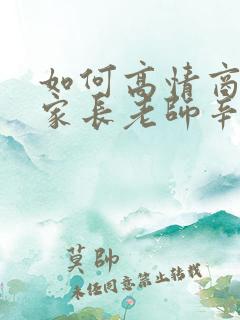 如何高情商
家長老師辛
莫帥
未经同意禁止转载